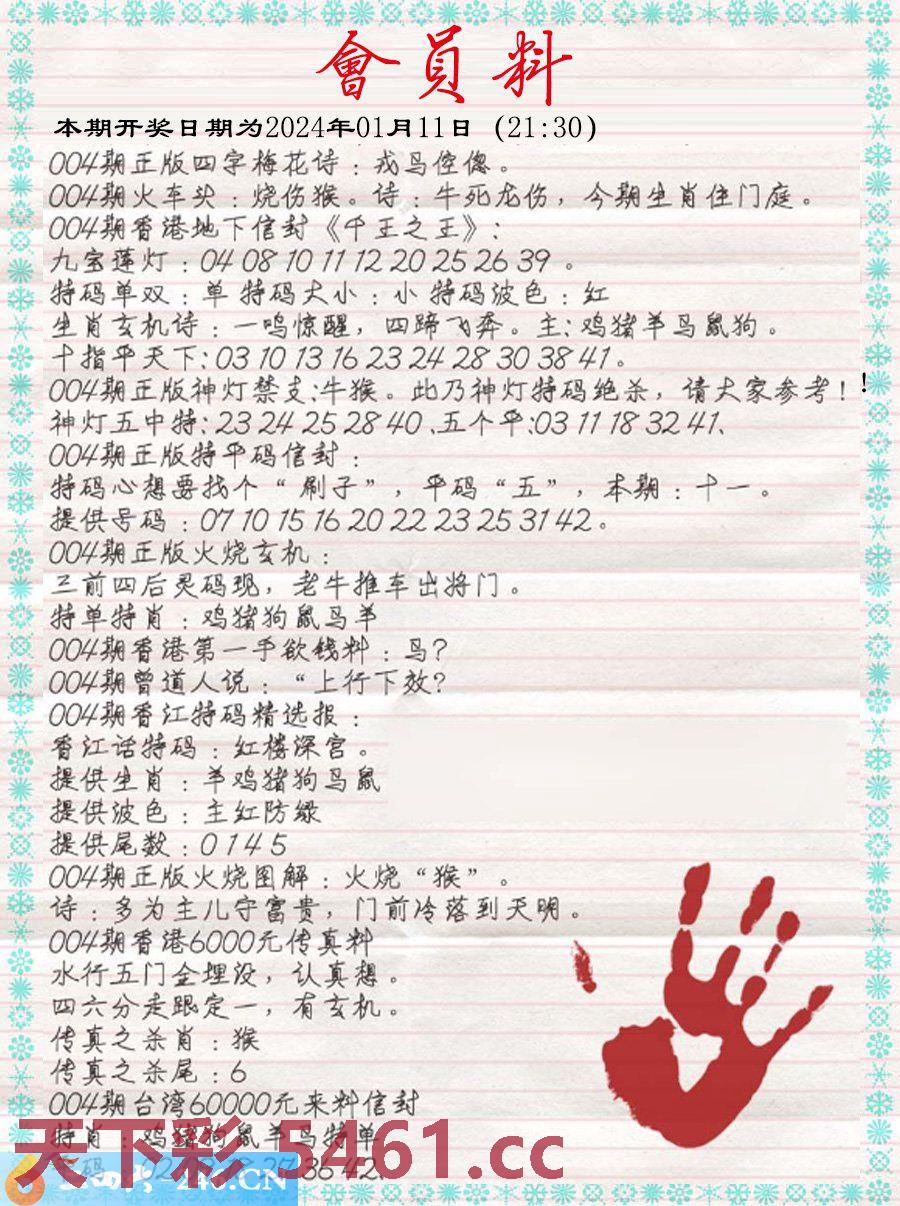 會員料
本期开奖日期为2024年01月11日（21:30）
004期正版四字梅花诗：戎马倥偬。
004期火车头：烧伤猴。诗：牛死龙伤，今期生肖住门庭。
004期香港地下信封《千王之王》：
九宝莲灯：04 08 10 11 12 20 25 26 39 。
特码单双：单 特码大小：小 特码波色：红
生肖玄机诗：一鸣惊醒，四蹄飞奔。主：鸡猪羊马鼠狗。
十指平天下：03 10 13 16 23 24 28 30 38 41。
004期正版神灯禁支:牛猴。此乃神灯特码绝杀，请大家参考！!
神灯五中特：23 24 25 28 40 、五个平:03 11 18 32 41、
004期正版特平码信封：
特码心想要找个“刷子”，平码“五”，本期：十一。
提供号码：07 10 15 16 20 22 23 25 31 42。
004期正版火烧玄机：
三前四后灵码现，老牛推车出将门。
特单特肖：鸡猪狗鼠马羊
004期香港第一手欲钱料：马?
004期曾道人说：“上行下效?
004期香江特码精选报：
香江话特码：红楼深宫。
提供生肖：羊鸡猪狗马鼠
提供波色：主红防绿
提供尾数：0 1 4 5
004期正版火烧图解：火烧“猴”。
诗：多为主儿守富贵，门前冷落到天明。
004期香港6000元传真料
水行五门金埋没，认真想。
四六分走跟定一，有玄机。
传真之杀肖：猴
传真之杀尾：6
004期台湾60000元来料信封
特肖：鸡猪狗鼠羊马特单
天下彩 5461.cc
246.CN